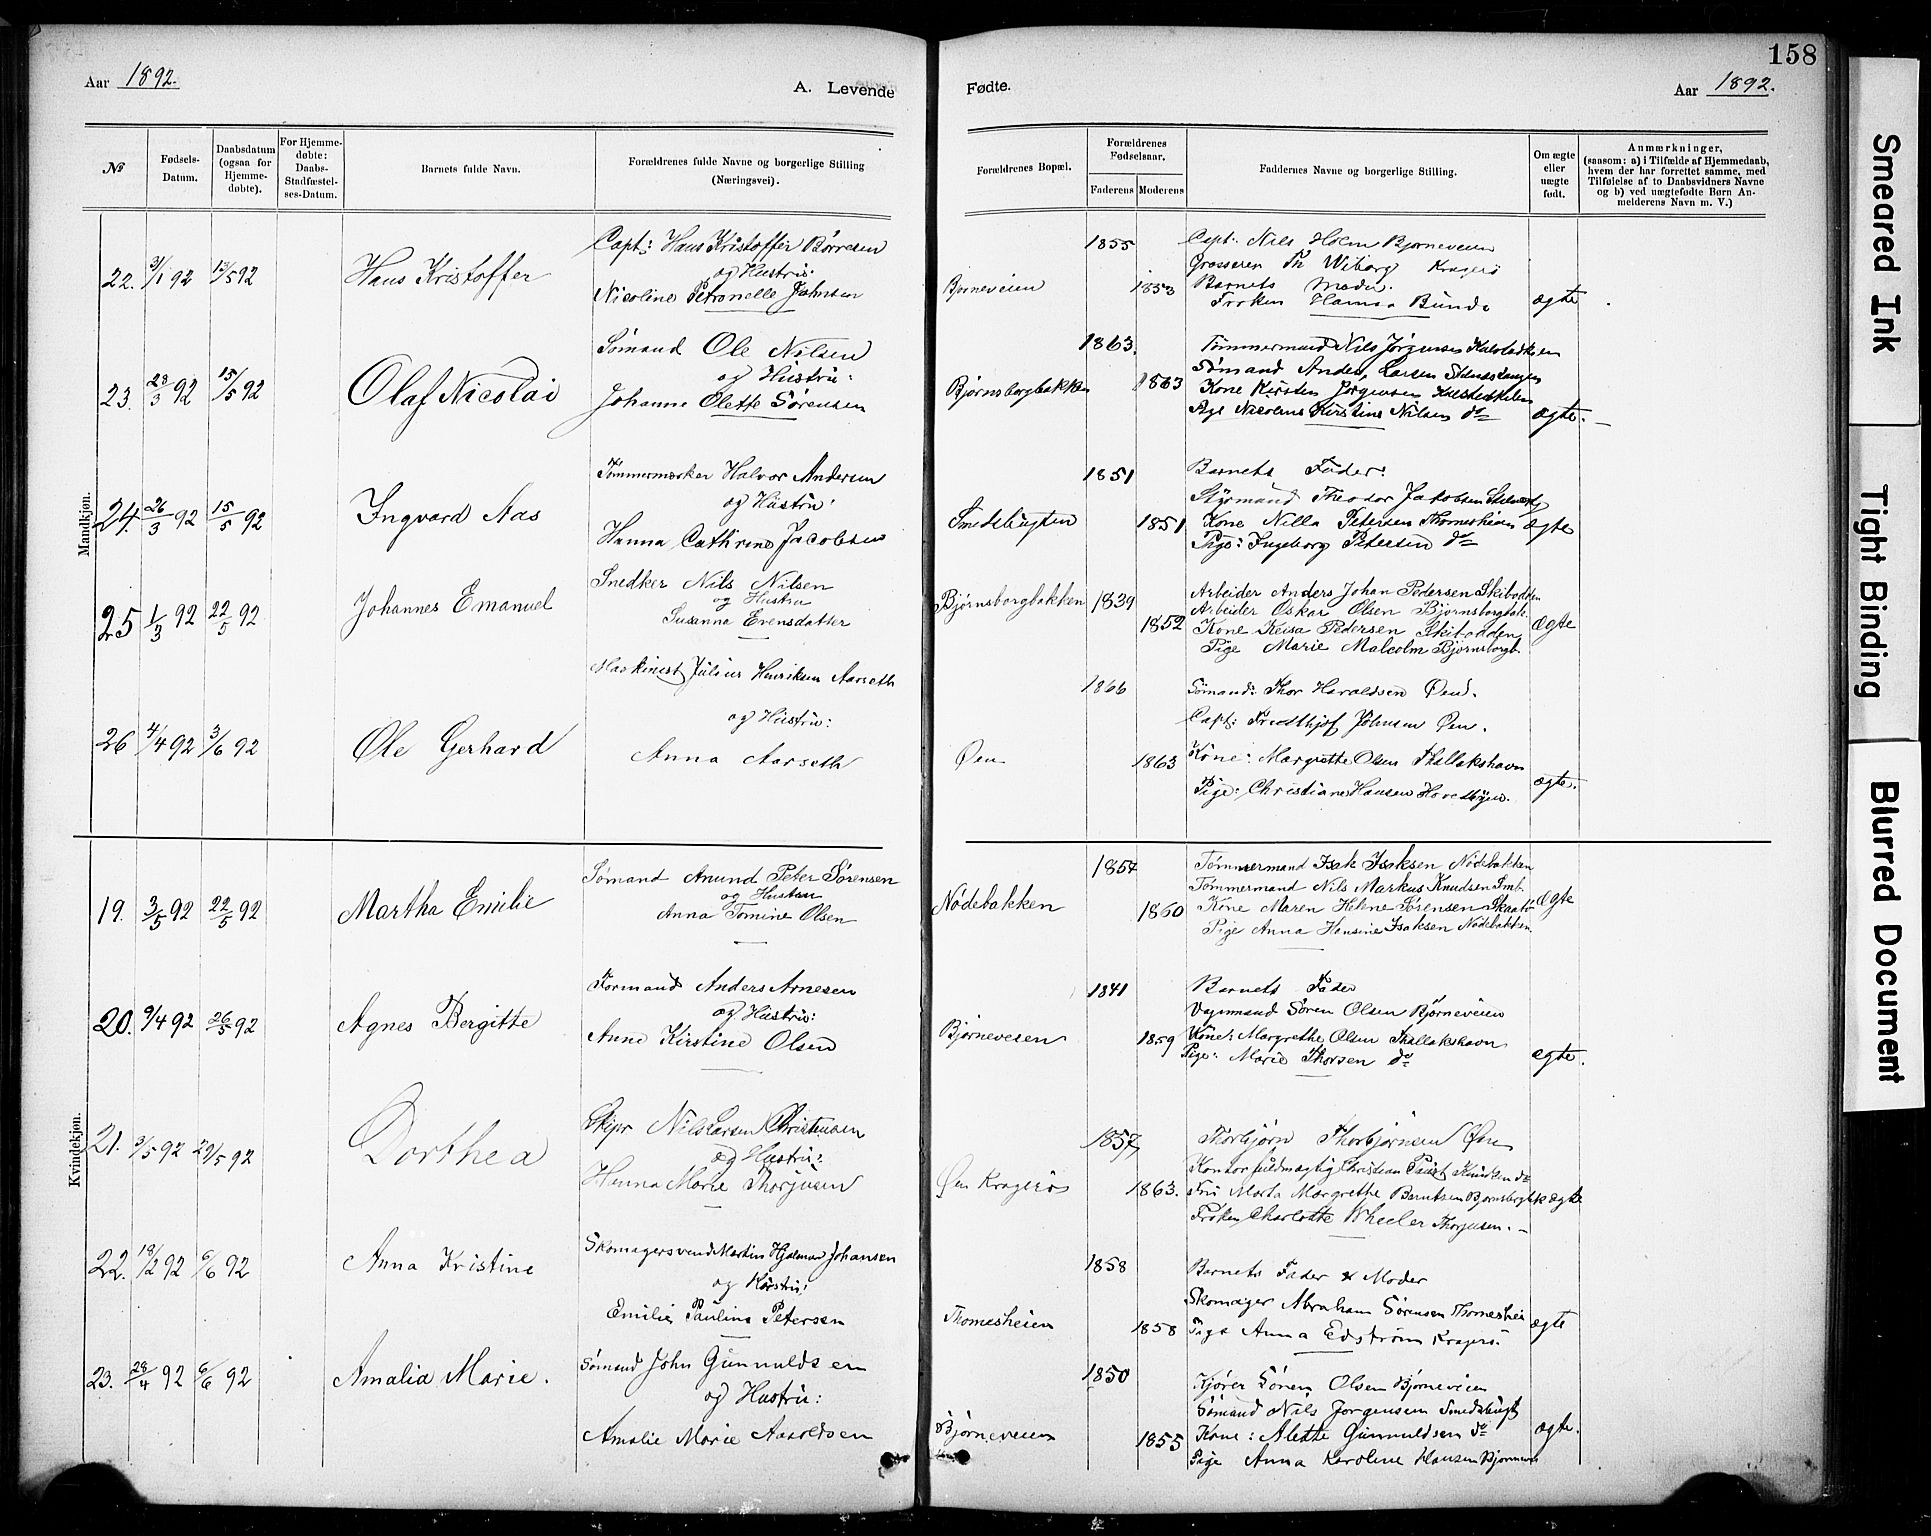 158
Aar 1892.
A. Levende
Fødte.
Aar 1892.
No
Fødsels-Datum.
Daabsdatum (ogsaa for Hjemme-døbte).
For Hjemme-døbte: Daabs-Stadfæstel-ses-Datum.
Barnets fulde Navn.
Forældrenes fulde Navne og borgerlige Stilling (Næringsvei).
Forældrenes Bopæl.
Forældrenes Fødselsaar.
Faderens
Moderens
Faddernes Navne og borgerlige Stilling.
Om ægte eller uægte født.
Anmærkninger,
(saasom: a) i Tilfælde af Hjemmedaab,
hvem der har forrettet samme, med
Tilføielse af to Daabsvidners Navne
og b) ved uægtefødte Børn An-
melderens Navn m. V.)
Mandkjøn.
22. 31/1 92 13/5 92 Hans Kristoffer
Capt: Hans Kristoffer Børresen
og Hustru:
Nicoline Petronelle Johnsen
Bjørneveien 1855 1853
Capt. Nils Holm Bjørneveien
Grosserer Th Wiborg Kragerø
Barnets Moder.
Frøken Hanna Bunde
ægte
23. 23/3 92 15/5 92 Olaf Nicolai
Sømand Ole Nilsen
og Hustru:
Johanne Olette Sørensen
Bjørnsborgbakken 1863. 1863
Tømmermand Nils Jørgensen
Sømand Anders Larsen
Kone Kirsten Jørgensen
Kirstine Nilsen do
ægte.
24. 26/3 92 15/5 92 Ingvard Aas
Tømmermærker Halvor Andersen
og Hustru:
Hanna Cathrine Jacobsen
Smedsbugten 1851 1851
Barnets Fader:
Styrmand Theodor Jakobsen
Kone Nilla Petersen Thomesheien
Pige: Ingeborg Petersen do
ægte
25 1/3 92 22/5 92 Johannes Emanuel
Snedker Nils Nilsen
og Hustru
Susanna Evensdatter
Bjørnsborgbakken 1839 1852
Arbeider Anders Johan Pedersen Skibodden
Arbeider Oskar Olsen Bjørnsborgbak
Kone Keisa Pedersen Skibodden
Pige Marie Malcolm Bjørnsborgb.
Ægte
26 4/4 92 3/6 92 Ole Gerhard
Maskinist Julius Henriksen Aarseth
og Hustru:
Anna Aarseth
Øen 1866 1863
Sømand: Thor Haraldsen Øen.
Capt: Fredthjof Johnsen Øen.
Kone: Margrethe Olsen Thallakshavn
Pige: Christiane Hansen
ægte.
Kvindekjøn.
19. 3/5 92 22/5 92 Martha Emilie
Sømand Anund Peter Sørensen
og Hustru
Anna Tomine Olsen
Nødebakken 1857 1860
Tømmermand Isak Isaksen Nødebakken
Tømmermand Nils Markus Knudsen Smb.
Kone Maren Helene Sørensen Skaatø
Pige Anna Hansine Isaksen Nødebakken
Ægte
20. 9/4 92 26/5 92 Agnes Bergitte
Formand Anders Arnesen
og Hustru:
Anne Kirstine Olsen
Bjørneveien 1841 1859
Barnets Fader
Vognmand Søren Olsen Bjørneveien
Kone: Margrethe Olsen Thallakshavn
Pige: Marie Thorsen do
ægte.
21. 3/5 92 29/5 92 Dorthea
Skipr Nils Larsen Christensen
og Hustru:
Hanna Marie Thorjusen
Øen Kragerø 1857 1863.
Thorbjørn Thorbjørnsen Øen
Kontorfuldmægtig Christian Knudsen do
Fru Marta Margrethe Berntsen Bjørnsborgbk
Frøken Charlotte Wheeler Thorjusen.
ægte
22. 18/2 92 6/6 92 Anna Kristine
Skomagersvend Martin Hjalmar Johansen
og Hustru:
Emilie Pauline Petersen
Thomesheien 1858 1858
Barnets Fader & Moder
Skomager Abraham Sørensen Thomeshei
Pige Anna Edstrøm Kragerø
ægte
23. 28/4 92 6/6 92 Amalia Marie.
Sømand John Gunnuldsen
og Hustru:
Amalie Marie Aaroldsen
Bjørneveien 1850 1855
Kjører Søren Olsen Bjørneveien
Sømand Nils Jorgensen Smedsbugt
Kone: Alette Gunnuldsen do
Pige Anna Karoline Hansen Bjørnevei
ægte.
Smeared Ink
Tight Binding
Blurred Document